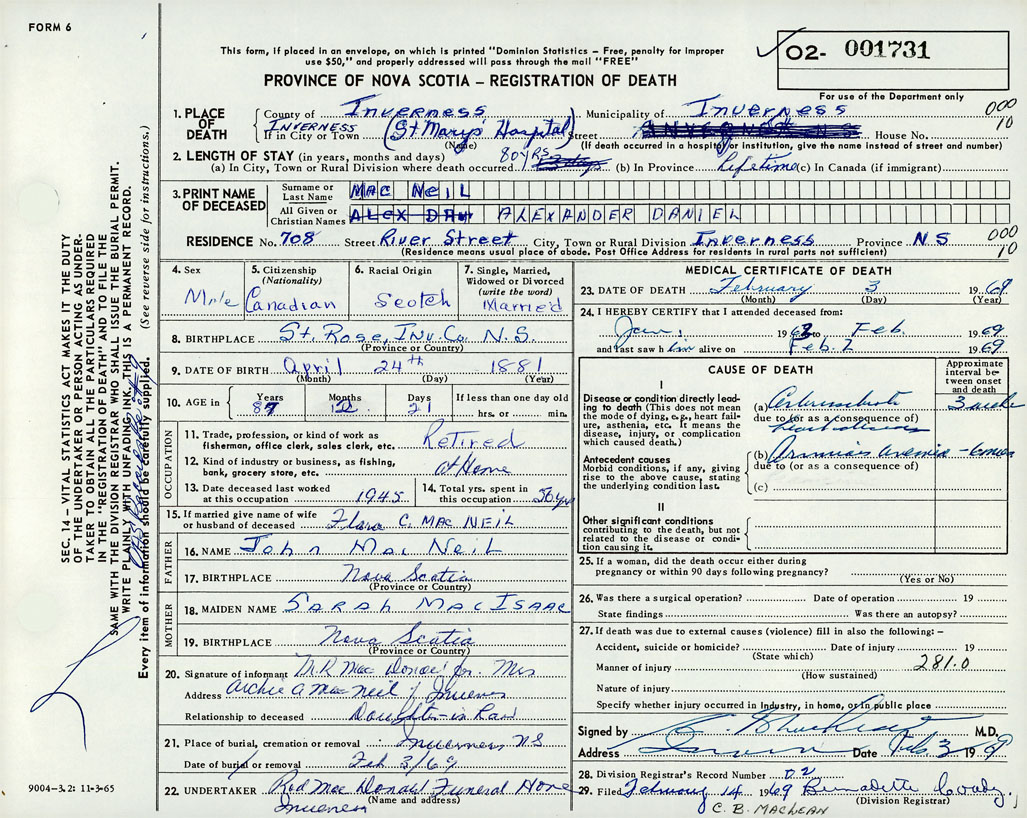 FORM 6
This form, if placed in an envelope, on which is printed "Dominion Statistics – Free, penalty for improper
use $50," and properly addressed will pass through the mail "FREE"
PROVINCE OF NOVA SCOTIA – REGISTRATION OF DEATH
O2- 001731
For use of the Department only
1. PLACE OF DEATH
County of Inverness Municipality of Inverness 000 10
Inverness (St Mary's Hospital)
If in City or Town (Name) Street House No.
(If death occurred in a hospital or institution, give the name instead of street and number)
2. LENGTH OF STAY (in years, months and days) 80 yrs
(a) In City, Town or Rural Division where death occurred (b) In Province Lifetime (c) In Canada (if immigrant)
3. PRINT NAME OF DECEASED
Surname or Last Name MAC NEIL
All Given or Christian Names ALEXANDER DANIEL
RESIDENCE No. 708 Street River Street City, Town or Rural Division Inverness Province NS 000 10
(Residence means usual place of abode. Post Office Address for residents in rural parts not sufficient)
4. Sex Male
5. Citizenship (Nationality) Canadian
6. Racial Origin Scotch
7. Single, Married, Widowed or Divorced (write the word) Married
8. BIRTHPLACE St. Rose, Inv. Co. N.S.
(Province or Country)
9. DATE OF BIRTH April 24th 1881
(Month) (Day) (Year)
10. AGE in Years 87 Months Days 21 If less than one day old hrs. or min.
OCCUPATION
11. Trade, profession, or kind of work as fisherman, office clerk, sales clerk, etc. Retired
12. Kind of industry or business, as fishing, bank, grocery store, etc. at Home
13. Date deceased last worked at this occupation 1945
14. Total yrs. spent in this occupation 50 yrs
15. If married give name of wife or husband of deceased Flora C. MAC NEIL
FATHER
16. NAME John Mac Neil
17. BIRTHPLACE Nova Scotia
(Province or Country)
MOTHER
18. MAIDEN NAME SARAH MACISAAC
19. BIRTHPLACE Nova Scotia
(Province or Country)
20. Signature of informant Mrs
Address Archie A Mac Neil Inverness
Relationship to deceased Daughter-in Law
21. Place of burial, cremation or removal Inverness NS
Date of burial or removal Feb 3/69
22. UNDERTAKER Rod Mac Donald Funeral Home
(Name and address)
Inverness
MEDICAL CERTIFICATE OF DEATH
23. DATE OF DEATH February 3 1969
(Month) (Day) (Year)
24. I HEREBY CERTIFY that I attended deceased from:
Jan. 196 to Feb. 1969
and last saw him alive on Feb. 2 1969
CAUSE OF DEATH
Approximate interval between onset and death
I
Disease or condition directly leading to death (This does not mean the mode of dying, e.g., heart failure, asthenia, etc. It means the disease, injury, or complication which caused death.)
(a)
due to (or as a consequence of)
Antecedent causes
Morbid conditions, if any, giving rise to the above cause, stating the underlying condition last.
(b)
due to (or as a consequence of)
(c)
II
Other significant conditions
contributing to the death, but not related to the disease or condition causing it.
25. If a woman, did the death occur either during pregnancy or within 90 days following pregnancy?
(Yes or No)
26. Was there a surgical operation? Date of operation 19
State findings Was there an autopsy?
27. If death was due to external causes (violence) fill in also the following: –
Accident, suicide or homicide? Date of injury 19
(State which)
Manner of injury 281.0
(How sustained)
Nature of injury
Specify whether injury occurred in Industry, in home, or in public place
Signed by M.D.
Address Date Feb 3 1969
28. Division Registrar's Record Number 02
29. Filed February 14 1969 Bernadette Coady
(Division Registrar)
C. B. MACLEAN
9004-3.2: 11-3-65
SEC. 14 – VITAL STATISTICS ACT MAKES IT THE DUTY
OF THE UNDERTAKER OR PERSON ACTING AS UNDER-
TAKER TO OBTAIN ALL THE PARTICULARS REQUIRED
IN THE "REGISTRATION OF DEATH" AND TO FILE THE
SAME WITH THE DIVISION REGISTRAR WHO SHALL ISSUE THE BURIAL PERMIT.
WRITE PLAINLY WITH UNFADING INK, THIS IS A PERMANENT RECORD.
Every item of information should be carefully supplied. (See reverse side for instructions.)